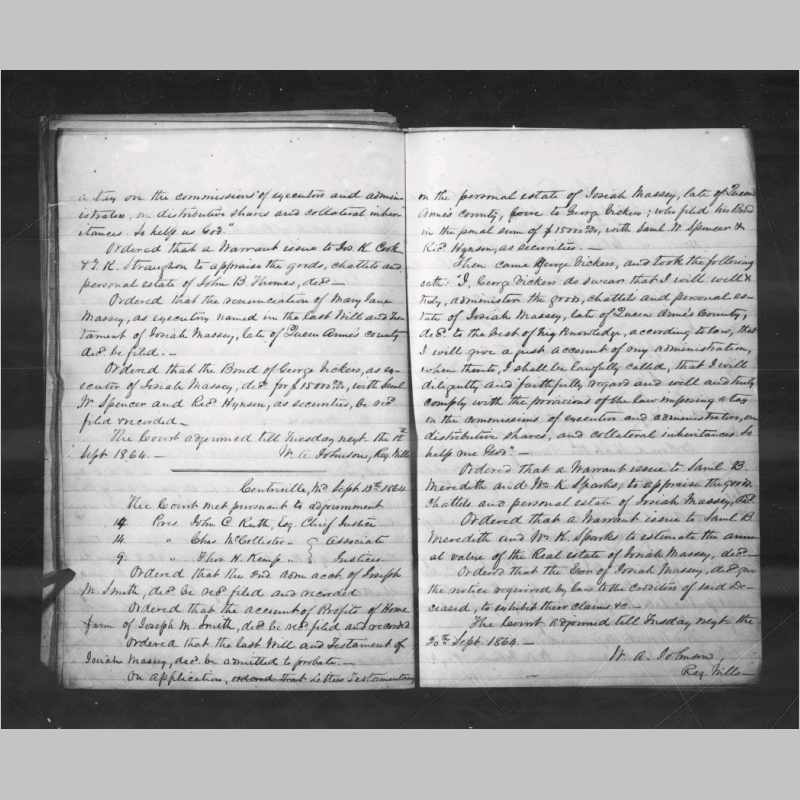 a tax on the commissions of executors and admin-
istrators, on distributive shares and collateral inher-
itances. So help us God."
Ordered that a Warrant issue to Jno. K. Cook
& K. Straughn to appraise the goods, chattels and
personal estate of John B. Thomas, decd—
Ordered that the renunciation of Mary Jane
Massey, as executrix named in the last Will and Tes-
tament of Josiah Massey, late of Queen Anne's county
decd be filed. —
Ordered that the Bond of George Vickers, as ex-
ecutor of Josiah Massey, decd for $15000, with Saml
W. Spencer and Richd Hynson, as securities, be recd
filed & recorded —
The Court adjourned till Tuesday next the
Sept 1864. — W. A. Johnson, Reg. Wills
Centreville, Md Sept 13th 1864
The Court met pursuant to adjournment
14 Pres John C. Ruth, Esq. Chief Justice
14 " Chas McCollister " } Associate
9 " Thos H. Kemp " } Justices
Ordered that the 2nd adm acct of Joseph
M. Smith, decd be recd filed and recorded
Ordered that the account of Profits of Home
farm of Joseph M. Smith, decd be recd filed and recorded
Ordered that the last Will and Testament of
Josiah Massey, decd be admitted to probate. —
On application, ordered that Letters Testamentary
on the personal estate of Josiah Massey, late of Queen
Anne's county, issue to George Vickers; who filed his Bond
in the penal sum of $15000, with Saml W. Spencer &
Richd Hynson, as securities. —
Then came George Vickers, and took the following
oath: "I, George Vickers do swear that I will well &
truly, administer the goods, chattels and personal es-
tate of Josiah Massey, late of Queen Anne's County,
decd to the best of my knowledge, according to law, that
I will give a just account of my administration,
when thereto, I shall be lawfully called, that I will
diligently and faithfully regard and well and truly
comply with the provisions of the law imposing a tax
on the commissions of executors and administrators, on
distributive shares, and collateral inheritances. So
help me God." —
Ordered that a Warrant issue to Saml B.
Meredith and Wm K. Sparks, to appraise the goods
chattels and personal estate of Josiah Massey, decd
Ordered that a Warrant issue to Saml B.
Meredith and Wm K. Sparks to estimate the annu-
al value of the Real estate of Josiah Massey, decd —
Ordered that the Exor of Josiah Massey, decd give
the notice required by law to the creditors of said De-
ceased, to exhibit their claims &c —
The Court adjourned till Tuesday next the
20th Sept. 1864 —
W. A. Johnson,
Reg Wills —